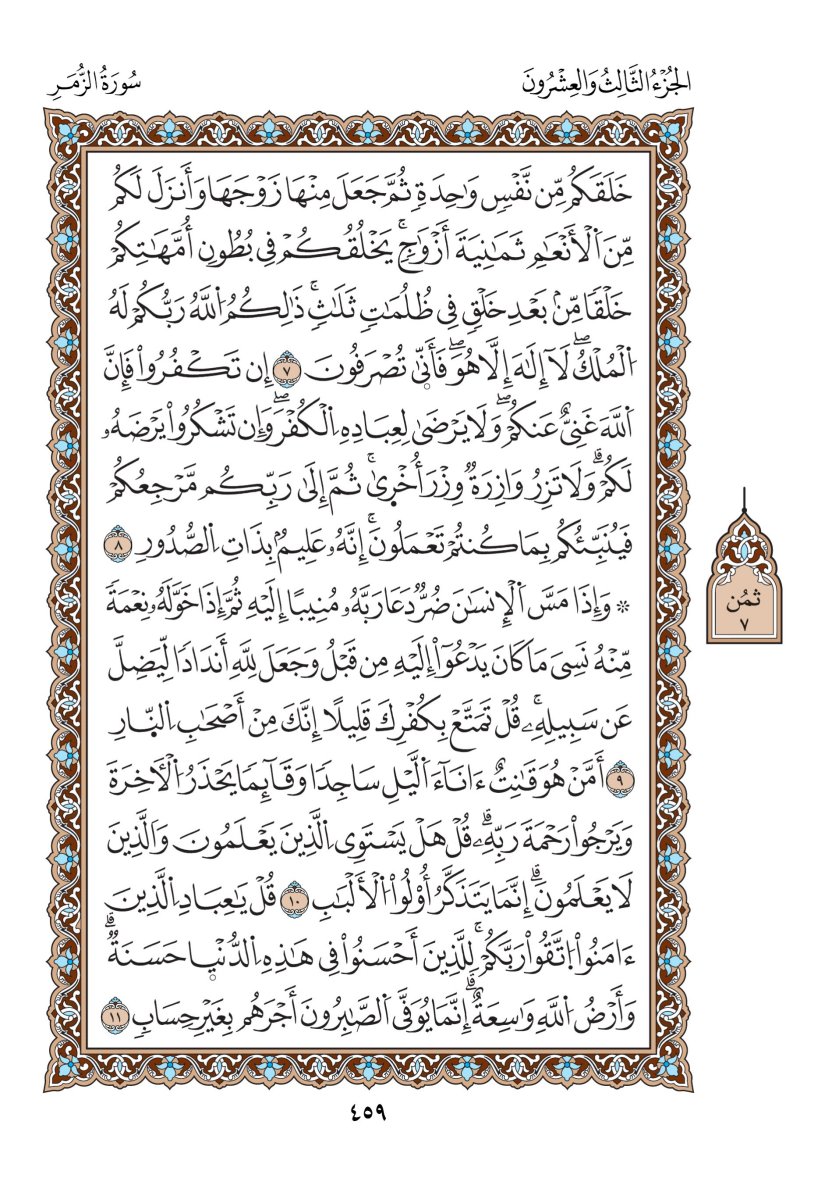 الجُزْءُ الثَّالِثُ وَالعِشْرُونَ
سُورَةُ الزُّمَرِ
خَلَقَكُم مِّن نَّفْسٖ وَٰحِدَةٖ ثُمَّ جَعَلَ مِنْهَا زَوْجَهَا وَأَنزَلَ لَكُم
مِّنَ اَ۬لْأَنْعَٰمِ ثَمَٰنِيَةَ أَزْوَٰجٖۚ يَخْلُقُكُمْ فِي بُطُونِ أُمَّهَٰتِكُمْ
خَلْقٗا مِّنۢ بَعْدِ خَلْقٖ فِي ظُلُمَٰتٖ ثَلَٰثٖۚ ذَٰلِكُمُ اُ۬للَّهُ رَبُّكُمْ لَهُ
اُ۬لْمُلْكُۖ لَآ إِلَٰهَ إِلَّا هُوَۖ فَأَنّٜىٰ تُصْرَفُونَ ٧ إِن تَكْفُرُواْ فَإِنَّ
اَ۬للَّهَ غَنِيٌّ عَنكُمْۖ وَلَا يَرْضَىٰ لِعِبَادِهِ اِ۬لْكُفْرَۖ وَإِن تَشْكُرُواْ يَرْضَهُۥ
لَكُمْۗ وَلَا تَزِرُ وَازِرَةٞ وِزْرَ أُخْر۪ىٰۚ ثُمَّ إِلَىٰ رَبِّكُم مَّرْجِعُكُمْ
فَيُنَبِّئُكُم بِمَا كُنتُمْ تَعْمَلُونَۚ إِنَّهُۥ عَلِيمُۢ بِذَاتِ اِ۬لصُّدُورِ ٨
۞ وَإِذَا مَسَّ اَ۬لْإِنسَٰنَ ضُرّٞ دَعَا رَبَّهُۥ مُنِيبًا إِلَيْهِ ثُمَّ إِذَا خَوَّلَهُۥ نِعْمَةٗ
مِّنْهُ نَسِيَ مَا كَانَ يَدْعُوٓاْ إِلَيْهِ مِن قَبْلُ وَجَعَلَ لِلَّهِ أَندَادٗا لِّيَضِلَّ
عَن سَبِيلِهِۦۚ قُلْ تَمَتَّعْ بِكُفْرِكَ قَلِيلًا إِنَّكَ مِنْ أَصْحَٰبِ اِ۬لنّ۪ارِ
٩ أَمَّنْ هُوَ قَٰنِتٌ ءَانَآءَ اَ۬لَّيْلِ سَاجِدٗا وَقَآئِمٗا يَحْذَرُ اُ۬لْأٓخِرَةَ
وَيَرْجُواْ رَحْمَةَ رَبِّهِۦۗ قُلْ هَلْ يَسْتَوِي اِ۬لَّذِينَ يَعْلَمُونَ وَالَّذِينَ
لَا يَعْلَمُونَۗ إِنَّمَا يَتَذَكَّرُ أُوْلُواْ اُ۬لْأَلْبَٰبِ ١٠ قُلْ يَٰعِبَادِ اِ۬لَّذِينَ
ءَامَنُواْ اُ۪تَّقُواْ رَبَّكُمْۚ لِلَّذِينَ أَحْسَنُواْ فِي هَٰذِهِ اِ۬لدُّنْي۪ا حَسَنَةٞۗ
وَأَرْضُ اُ۬للَّهِ وَٰسِعَةٌۗ إِنَّمَا يُوَفَّى اَ۬لصَّٰبِرُونَ أَجْرَهُم بِغَيْرِ حِسَابٖ ١١
ثمُن
٧
٤٥٩